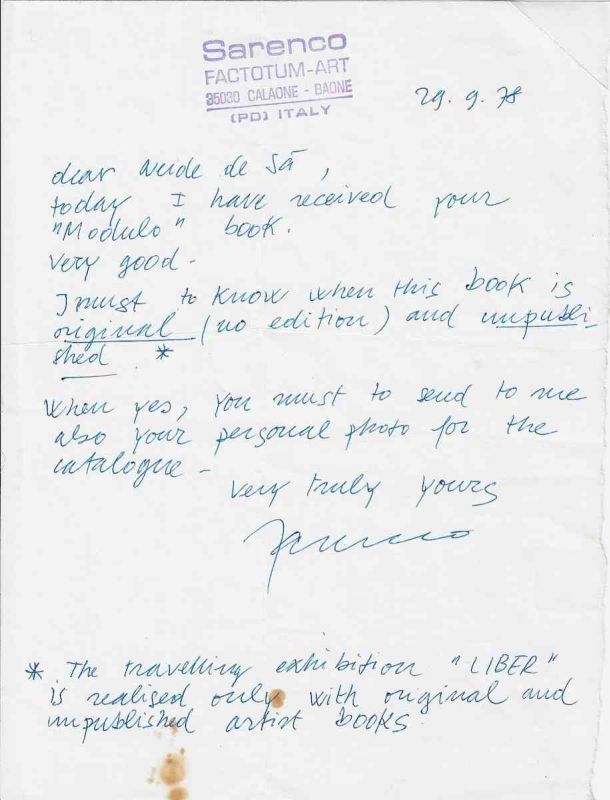 Sarenco
FACTOTUM-ART
35030 CALAONE - BAONE
(PD) ITALY
29. 9. 78
dear Neide de Sā,
today I have received your
"Modulo" book.
very good -
I must to know when this book is
original (no edition) and unpubli-
shed. *
When yes, you must to send to me
also your personal photo for the
catalogue -
very truly yours
Sarenco
* The travelling exhibition "LIBER"
is realised only with original and
unpublished artist books.